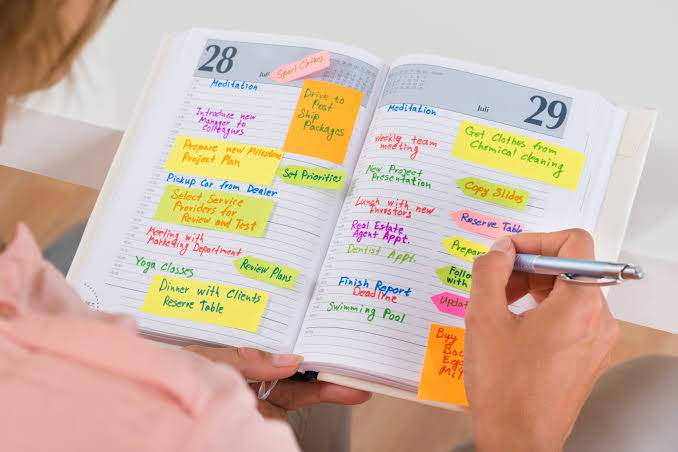 28
Juli
Sport Clothes
Meditation
Drive to
Post
Ship
Packages
Introduce new
Manager to
Colleagues
Prepare new Milestone
Project Plan
Set Priorities
Pickup Car from Dealer
Select Service
Providers for
Review and Test
Meeting with
Marketing Department
Yoga Classes
Review Plans
Dinner with Clients
Reserve Table
29
Juli
Meditation
Weekly team
meeting
Get Clothes from
Chemical cleaning
New Project
Presentation
Copy Slides
Lunch with new
investors
Reserve Table
Real Estate
Agent Appt.
Prepare
Dentist Appt.
Follow
with
Finish Report
Deadline
Update
Swimming Pool
Buy